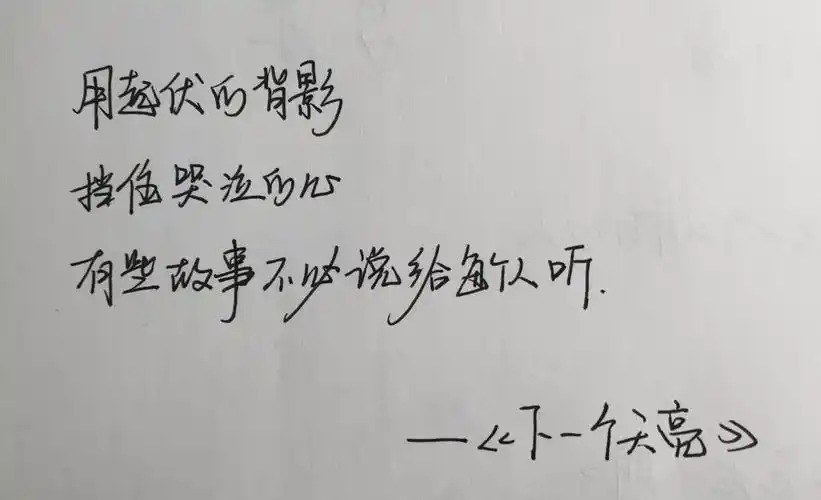 用起伏的背影
挡住哭泣的心
有些故事不必说给每个人听.
—《下一个天亮》